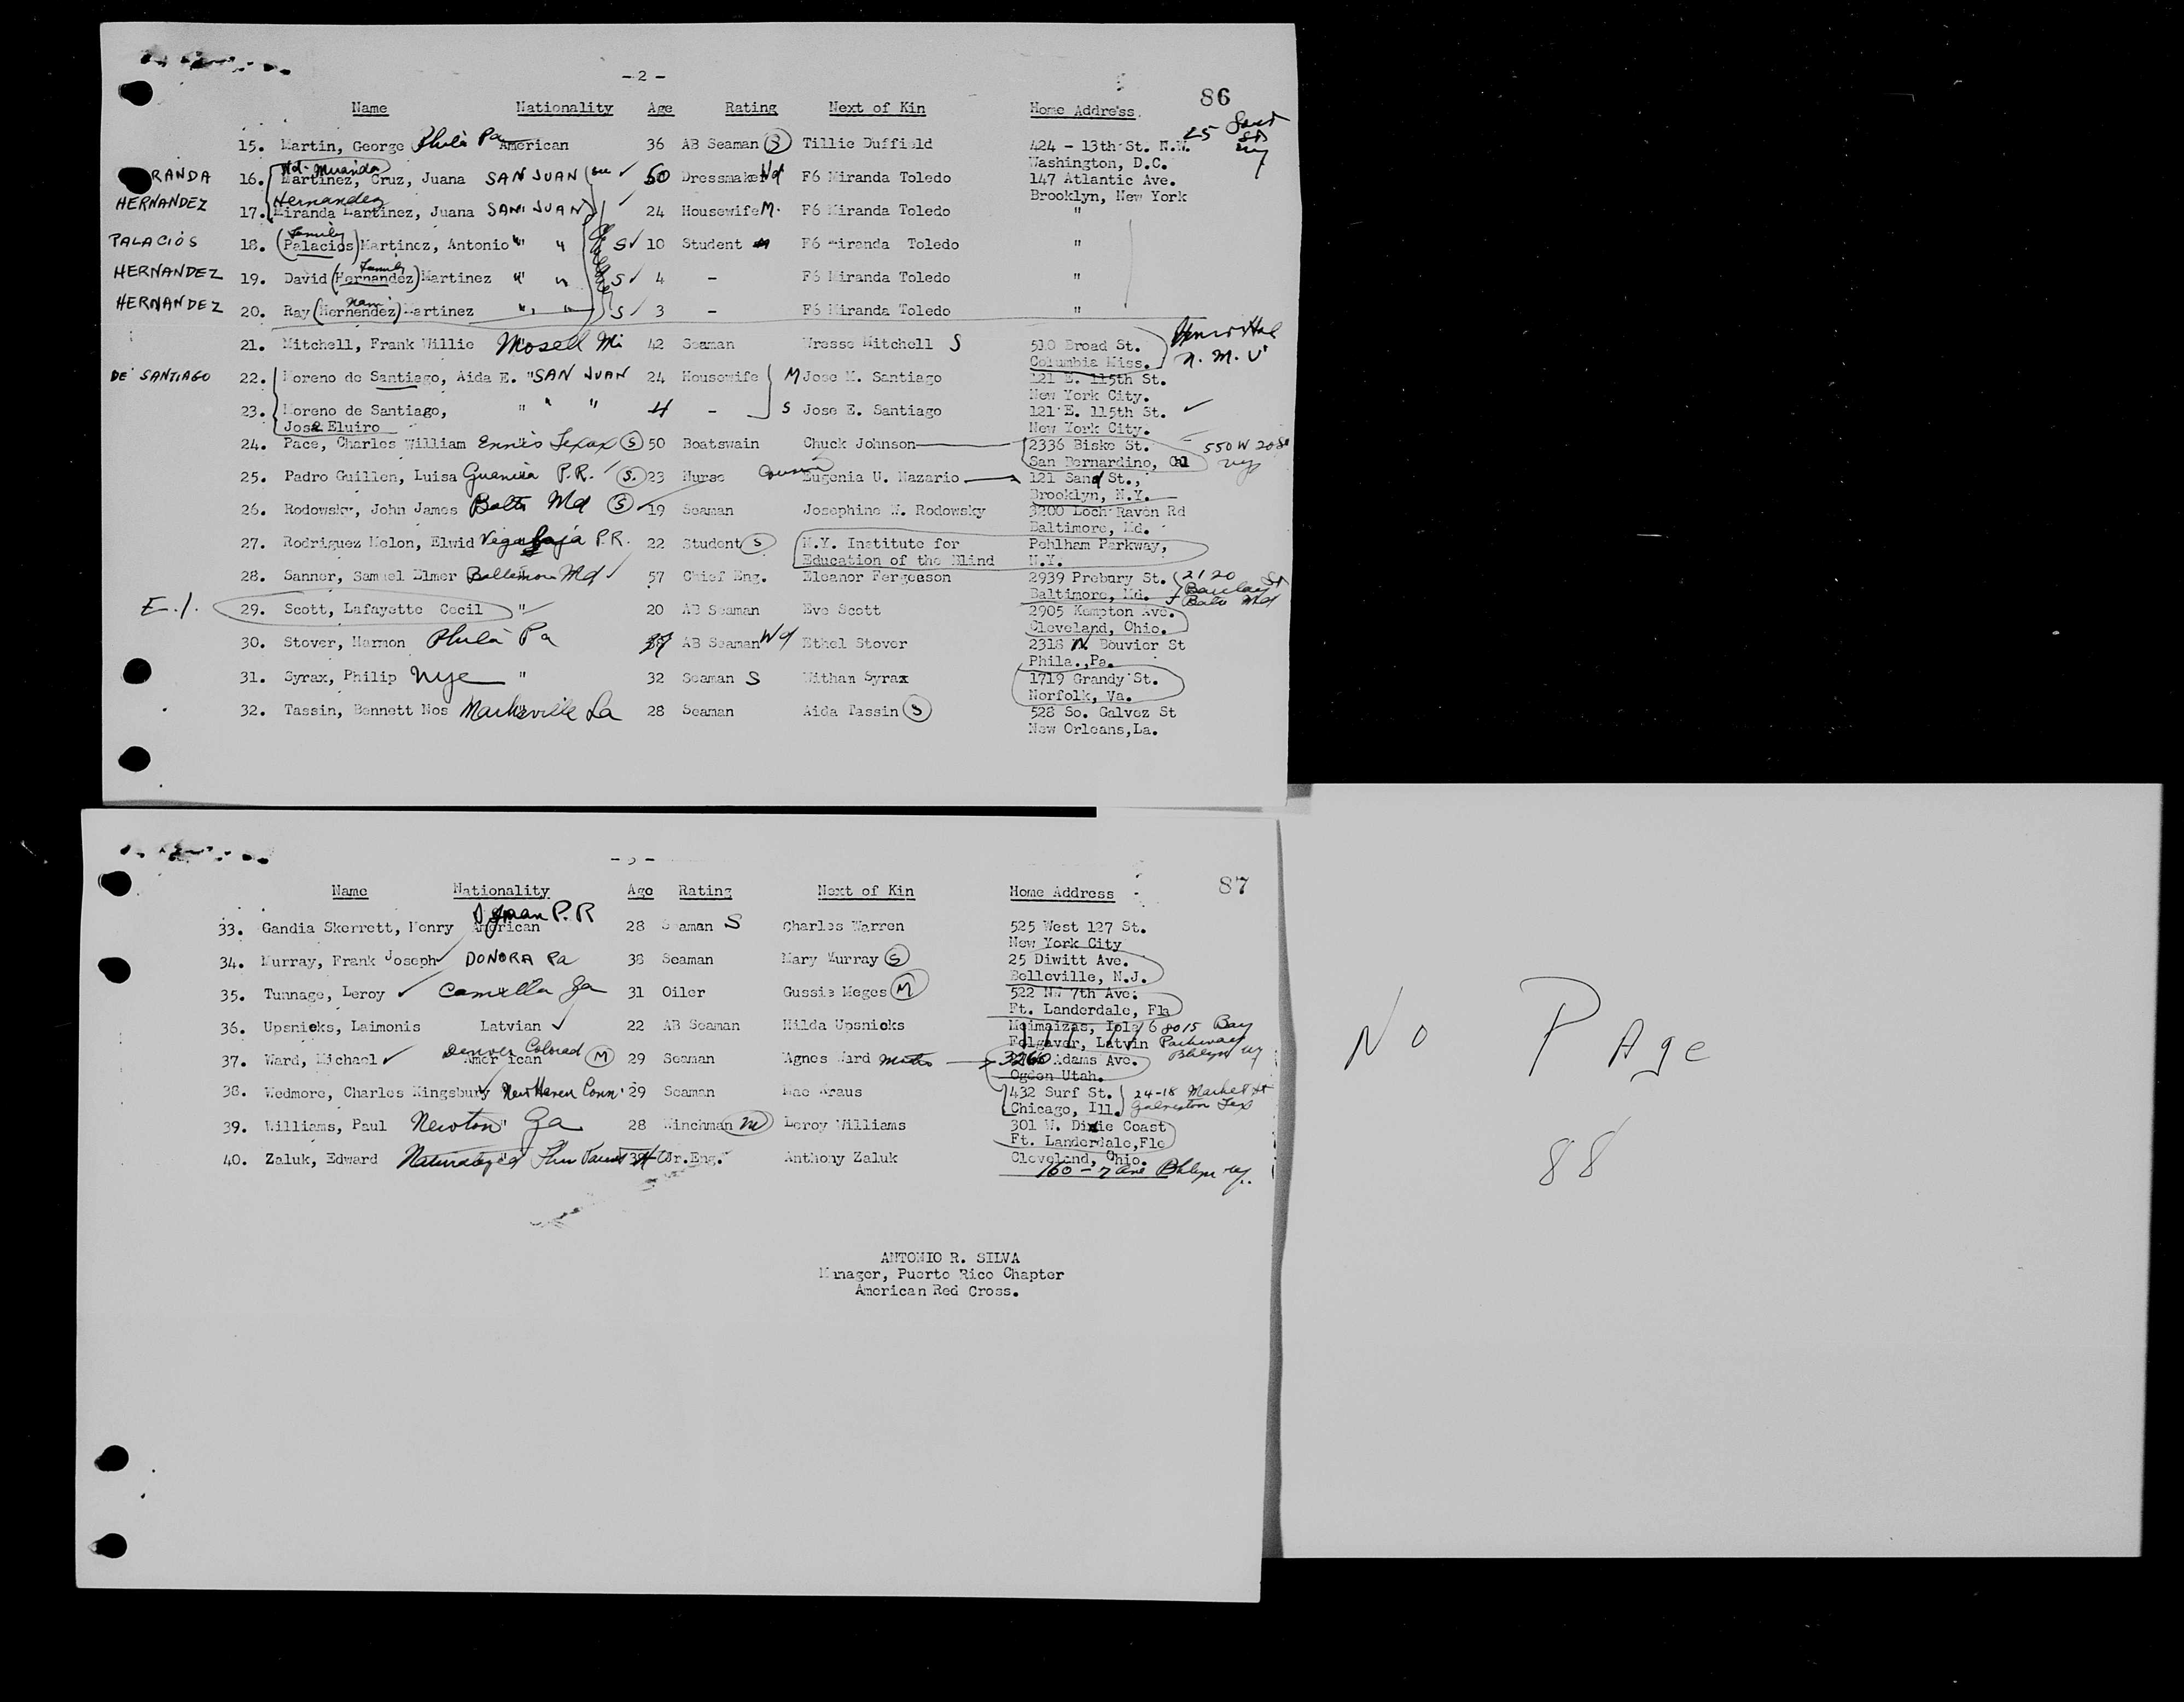 - 2 -
86
Name Nationality Age Rating Next of Kin Home Address
25 Sand St NY
15. Martin, George Phila Pa American 36 AB Seaman S Tillie Duffield 424 - 13th St. N.W.
Washington, D.C.
Wd- Miranda
RANDA 16. Martinez, Cruz, Juana SAN JUAN 50 Dressmaker Wd F6 Miranda Toledo 147 Atlantic Ave.
Brooklyn, New York
Hernandez
HERNANDEZ 17. Miranda Martinez, Juana SAN JUAN 24 Housewife M. F6 Miranda Toledo "
Family
PALACIOS 18. (Palacios) Martinez, Antonio " " S 10 Student F6 Miranda Toledo "
Family
HERNANDEZ 19. David (Hernandez) Martinez " " S 4 - F6 Miranda Toledo "
HERNANDEZ 20. Ray (Hernendez) Martinez " " S 3 - F6 Miranda Toledo "
21. Mitchell, Frank Willie Mosell Mi 42 Seaman Uresse Mitchell S 510 Broad St. N.M.U
Columbia Miss.
DE SANTIAGO 22. Moreno de Santiago, Aida E. "SAN JUAN 24 Housewife M Jose M. Santiago 121 E. 115th St.
New York City.
23. Moreno de Santiago, " " " 4 - S Jose E. Santiago 121 E. 115th St.
Jose Eluiro New York City.
24. Pace, Charles William Ennis Texas S 50 Boatswain Chuck Johnson 2336 Biske St. 550 W 20 St
San Bernardino, Cal NYC
25. Padro Guillen, Luisa Guanica P.R. S. 23 Nurse Cousin Eugenia U. Nazario 121 Sand St.,
Brooklyn, N.Y.
26. Rodowsky, John James Balto Md S 19 Seaman Josephine W. Rodowsky 3200 Loch Raven Rd
Baltimore, Md.
27. Rodriguez Melon, Elwid Vega Baja P.R. 22 Student S N.Y. Institute for Pehlham Parkway,
Education of the Blind N.Y.
28. Sanner, Samuel Elmer Baltimore Md 57 Chief Eng. Eleanor Fergeason 2939 Presbury St. 2120 Barclay St
Baltimore, Md. Balto Md
E.I. 29. Scott, Lafayette Cecil " 20 AB Seaman Eve Scott 2905 Kempton Ave.
Cleveland, Ohio.
30. Stover, Harmon Phila Pa AB Seaman Wd Ethel Stover 2318 N. Bouvier St
Phila.,Pa.
31. Syrax, Philip NYC " 32 Seaman S Withan Syrax 1719 Grandy St.
Norfolk, Va.
32. Tassin, Bennett Nos Marksville La 28 Seaman Aida Tassin S 528 So. Galvez St
New Orleans,La.
87
Name Nationality Age Rating Next of Kin Home Address
S Juan P.R
33. Gandia Skerrett, Henry American 28 Seaman S Charles Warren 525 West 127 St.
New York City
34. Murray, Frank Joseph DONORA Pa 38 Seaman Mary Murray S 25 Diwitt Ave.
Belleville, N.J.
35. Tunnage, Leroy Camilla Ga 31 Oiler Gussie Meges M 522 NW 7th Ave.
Ft. Landerdale, Fla
36. Upsnieks, Laimonis Latvian 22 AB Seaman Hilda Upsnieks Meimaizas, Iola 6 8015 Bay
Folgaver, Latvin Parkway
Denver Colorad Bklyn NY
37. Ward, Michael American M 29 Seaman Agnes Ward 3260 Adams Ave.
Ogden Utah.
38. Wedmore, Charles Kingsbury New Haven Conn. 29 Seaman Mae Kraus 432 Surf St. 24-18 Market St
Chicago, Ill. Galveston Tex
39. Williams, Paul Newton Ga " 28 Winchman M Leroy Williams 301 W. Dixie Coast
Ft. Landerdale,Fle
40. Zaluk, Edward Naturalized " 38 Jr.Eng. Anthony Zaluk Cleveland, Ohio.
160 - 7 Ave Bklyn NY.
ANTONIO R. SILVA
Manager, Puerto Rico Chapter
American Red Cross.
No PAge
88